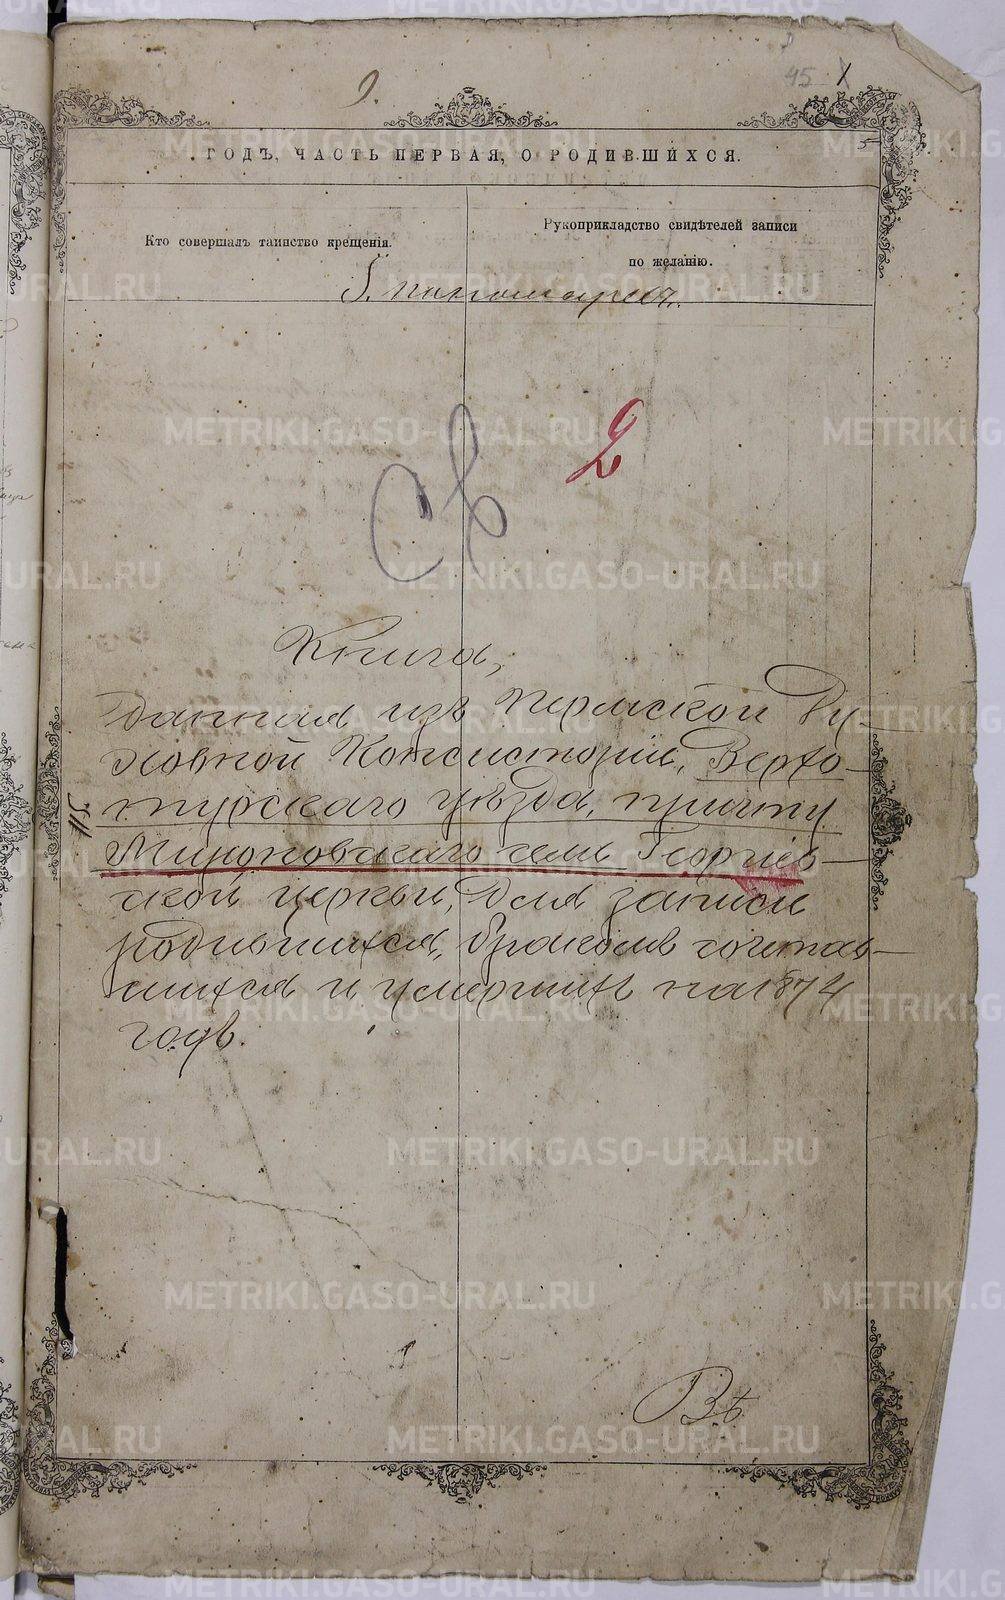 9.
45
1
5
ГОДЪ, ЧАСТЬ ПЕРВАЯ, О РОДИВШИХСЯ.
Кто совершалъ таинство крещенія.
Рукоприкладство свидѣтелей записи
по желанію.
2
Книга,
данная изъ Пермской Ду-
ховной Консисторіи, Верхо-
турскаго уѣзда, причту
Мироновскаго села Георгіев-
ской церкви, для записи
родившихся, бракомъ сочетав-
шихся и умершихъ на 1874
годъ.
Въ
METRIKI.GASO-URAL.RU